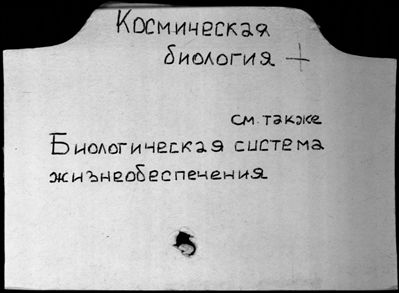 Космическая
биология +
см. также
Биологическая система
жизнеобеспечения